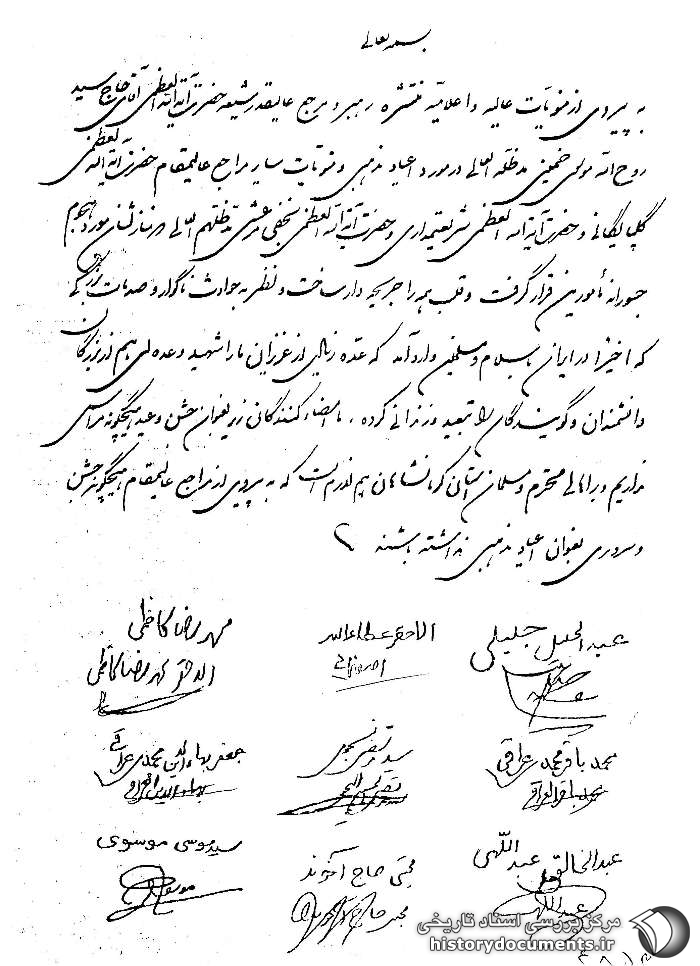 بسمه تعالی
به پیروی از منویات عالیه و اعلامیه منتشره رهبر و مرجع عالیقدر شیعه حضرت آیة الله العظمی آقای حاج سید
روح الله موسوی خمینی مدظله العالی در مورد اعیاد مذهبی و منویات سایر مراجع عالیمقام حضرت آیة الله العظمی
گلپایگانی و حضرت آیة الله العظمی شریعتمداری و حضرت آیة الله العظمی نجفی مرعشی مدظلهم العالی که منازلشان مورد هجوم
جسورانه مأمورین قرار گرفت و قلب همه را جریحه دار ساخت و نظر به حوادث ناگوار و صدمات بزرگی
که اخیرا در ایران باسلام و مسلمین وارد آمد که عده زیادی از عزیزان ما را شهید و عده ای هم از بزرگان
دانشمندان و گویندگان را تبعید و زندانی کرده، ما امضاء کنندگان زیر بعنوان جشن و عید هیچگونه مراسمی
نداریم و بر اهالی محترم و مسلمان استان کرمانشاهان هم لازم است که به پیروی از مراجع عالیمقام هیچگونه جشن
و سروری بعنوان اعیاد مذهبی نداشته باشند
عبدالجلیل جلیلی
الاحقر عطاءالله
محمد رضا کاظمی
الاحقر محمد رضا کاظمی
محمد باقر محمدی عراقی
محمد باقر العراقی
سید مرتضی نجومی
جعفر بهاءالدین محمدی عراقی
بهاءالدین العراقی
عبدالخالق عبداللهی
عبداللهی
مجتبی حاج آخوند
مجتبی حاج آخوند
سید موسی موسوی
موسوی
مرکز بررسی اسناد تاریخی
historydocuments.ir